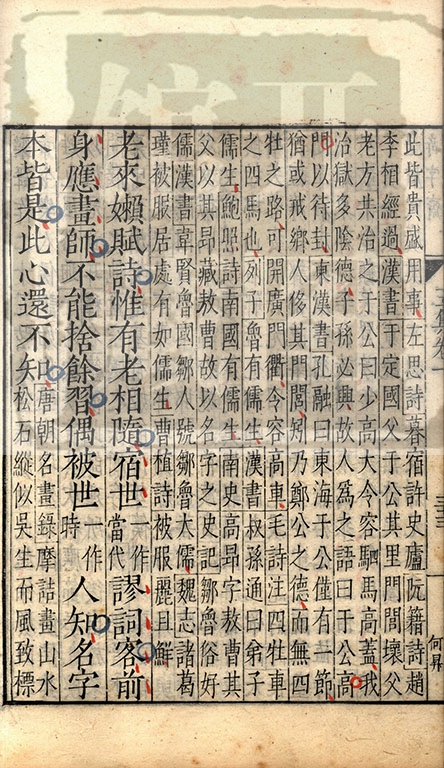 此皆貴盛用事左思詩暮宿許史廬阮籍詩趙
李相經過漢書于定國父于公其里門閭壞父
老方共治之于公曰少高大令容駟馬高蓋我
治獄多陰德子孫必興故人為之語曰于公高
門以待封東漢書孔融曰東海于公僅有一節
猶或戒鄉人侈其門閭矧乃鄭公之德而無四
牡之路可開廣門衢令容高車毛詩注四牡車
之四馬也列子魯有儒生漢書叔孫通曰弟子
儒生鮑照詩南國有儒生南史高昂字敖曹其
父以其昂藏敖曹故以名字之史記鄒魯俗好
儒漢書韋賢魯國鄒人號鄒魯大儒魏志諸葛
瑾被服居處有如儒生曹植詩被服麗且鮮
老來嬾賦詩惟有老相隨宿世一作當代謬詞客前
身應畫師不能捨餘習偶被世一作時人知名字
本皆是此心還不知唐朝名畫錄摩詰畫山水
松石縱似吳生而風致標
何昇